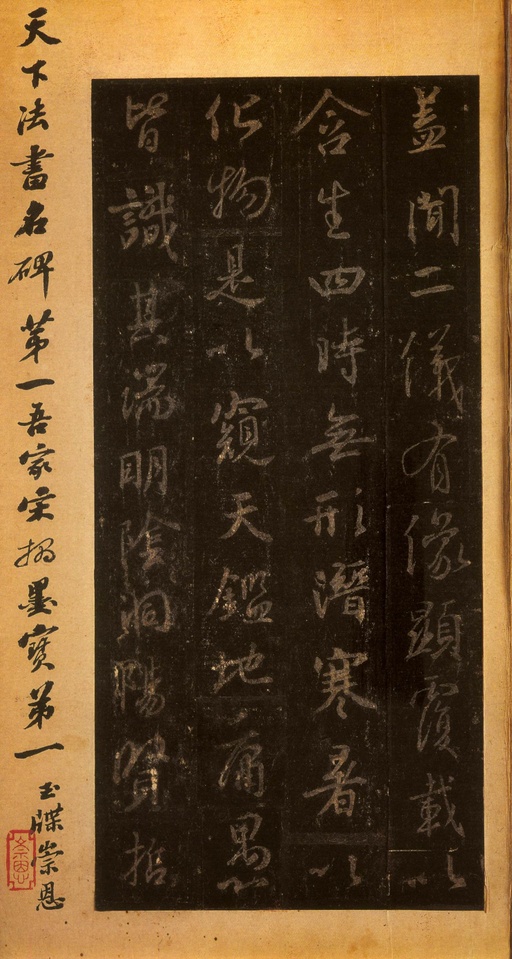 盖聞二儀有像顯覆載以
含生四時無形潛寒暑以
化物是以窺天鑑地庸愚
皆識其端明陰洞陽賢哲
天下法書名碑第一吾家宋搨墨寶第一
玉牒崇恩
崇恩